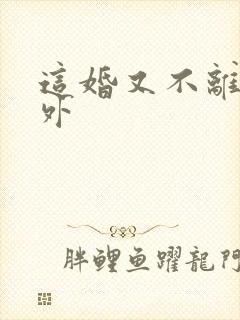 這婚又不離
外
胖鯉鱼躍龍門